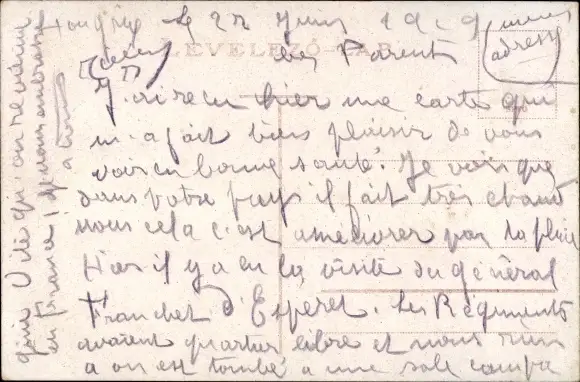 le 22 Juin 1919
LEVELEZŐ-LAP
adresse
chers Parents
J'ai reçu hier une carte qui
m'a fait bien plaisir de vous
voir en bonne santé. Je vois que
dans votre pays il fait très chaud
nous cela c'est améliorer par la pluie
Hier il y a eu la visite du général
Franchet d'Esperet. Les Régiments
avaient quartier libre et nous rien
a on est tombé a une sale
Vite qu'on revienne
en France